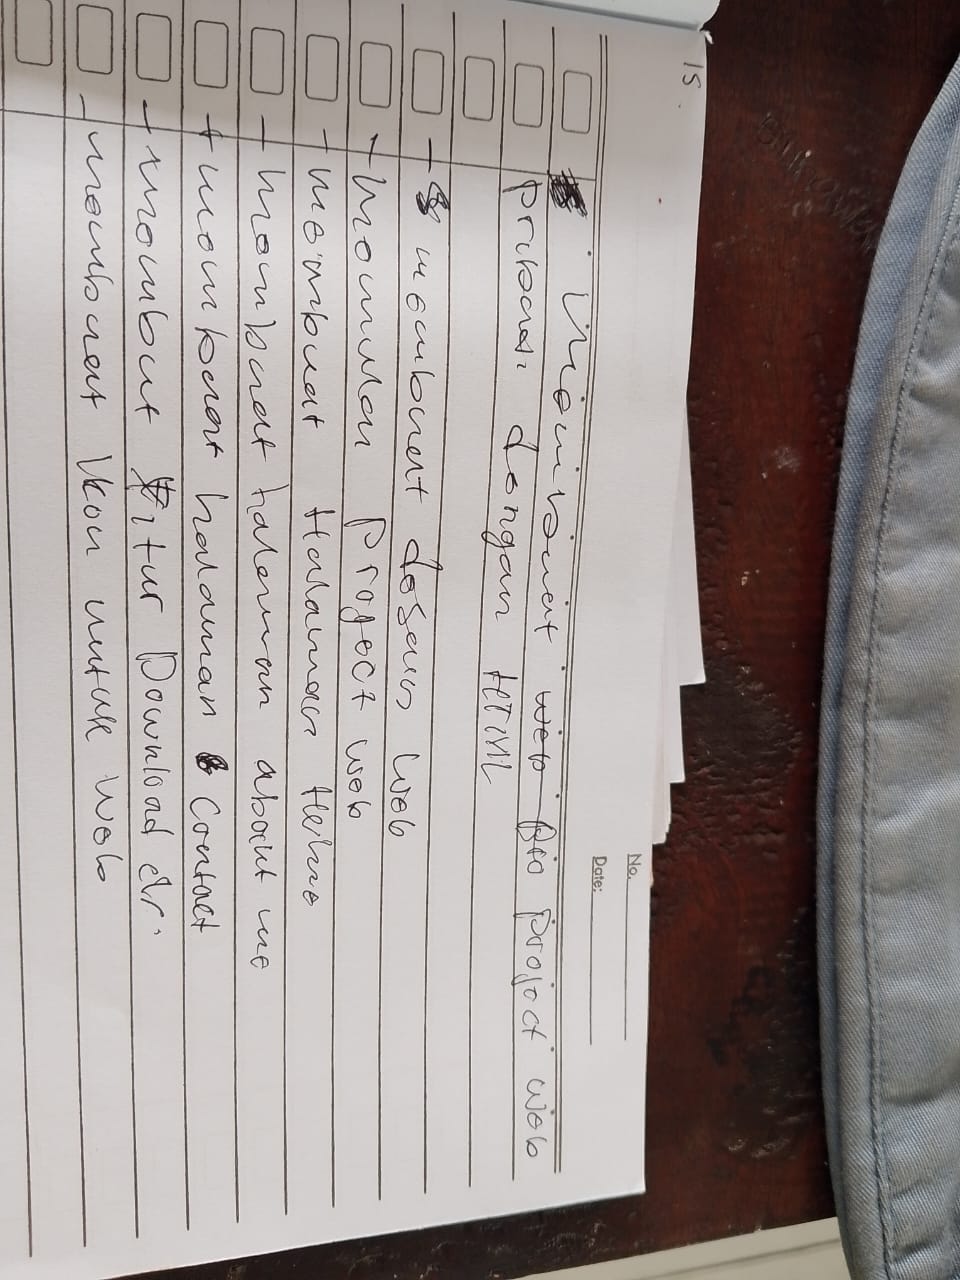 15.
No.
Date:
Membuat web pro project web
pribadi dengan HTML
- membuat desain web
- Memulai project web
- membuat Halaman Home
- membuat halaman about me
- membuat halaman Contact
- membuat fitur Download cv.
- membuat Ikon untuk web